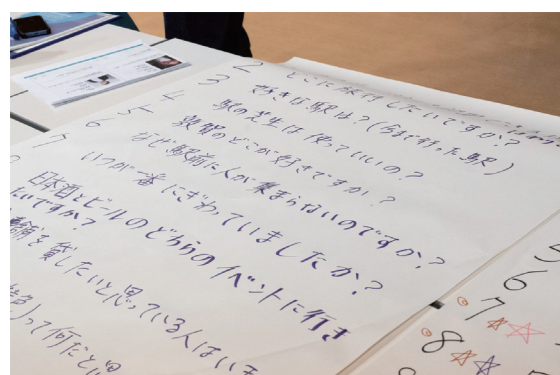 2 どこに旅行したいですか?
3 好きな駅は?(今まで行った駅)
4 駅の芝生は使っていいの?
5 敦賀のどこが好きですか?
6 なぜ駅前に人が集まらないのですか?
7 いつが一番にぎわっていましたか?
日本酒とビールのどちらのイベントに行き
たいですか?
舗を貸したいと思っている人はいま
って何だと思
5
6
7
8